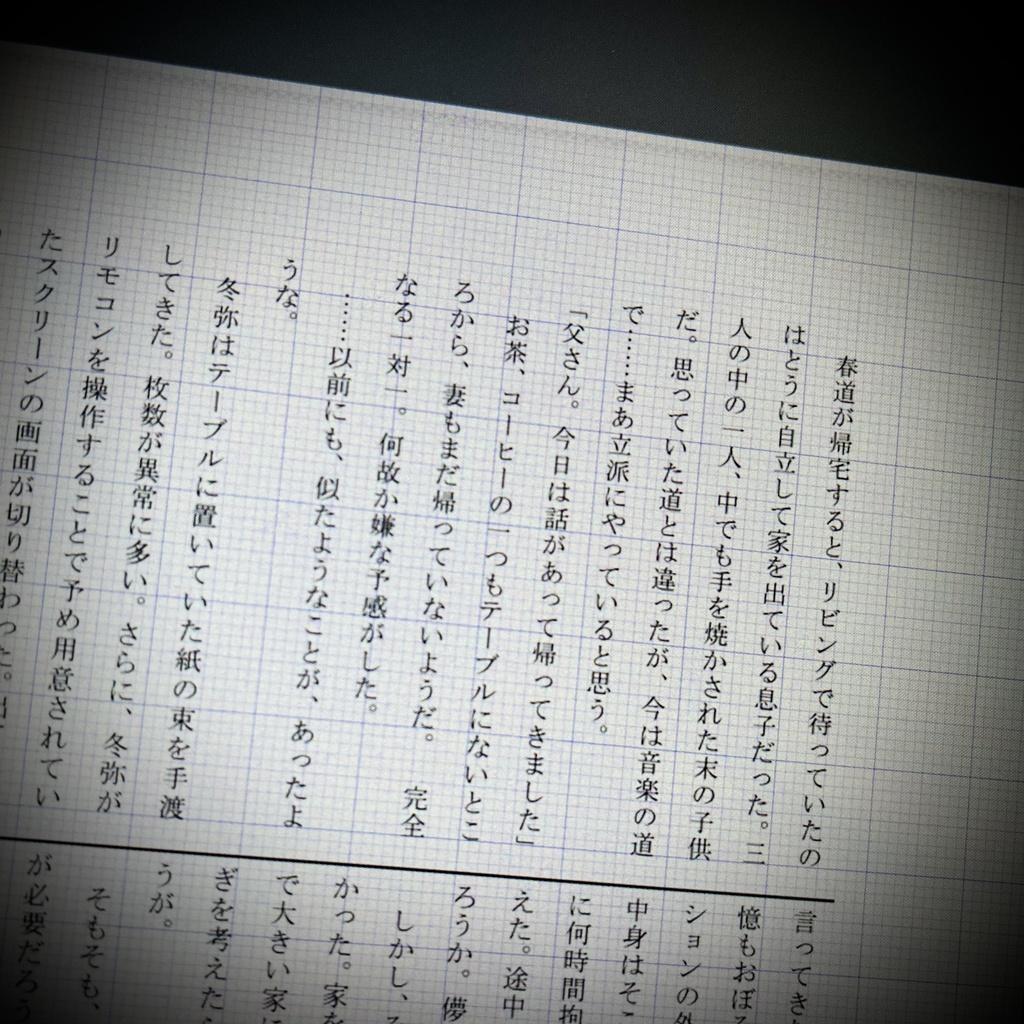 春道が帰宅すると、リビングで待っていたの
はとうに自立して家を出ている息子だった。三
人の中の一人、中でも手を焼かされた末の子供
だ。思っていた道とは違ったが、今は音楽の道
で……まあ立派にやっていると思う。
「父さん。今日は話があって帰ってきました」
お茶、コーヒーの一つもテーブルにないとこ
ろから、妻もまだ帰っていないようだ。　完全
なる一対一。何故か嫌な予感がした。
……以前にも、似たようなことが、あったよ
うな。
冬弥はテーブルに置いていた紙の束を手渡
してきた。枚数が異常に多い。さらに、冬弥が
リモコンを操作することで予め用意されてい
たスクリーンの画面が切り替わった。
言ってき
憶もおぼ
ションの
中身はそ
に何時間拘
えた。途中
ろうか。儚
しかし、
かった。家を
で大きい家に
ぎを考えた
うが。
そもそも、
が必要だろう